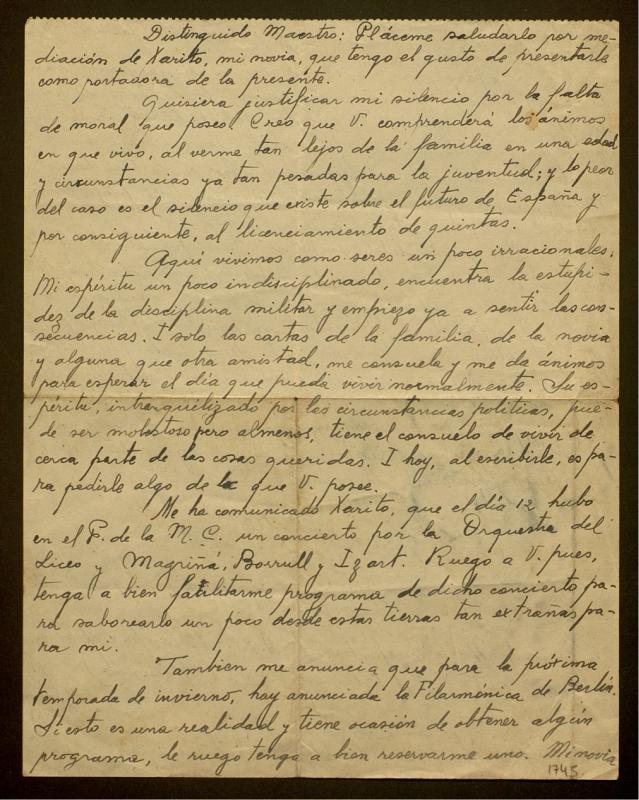 Distinguido Maestro: Pláceme saludarlo por me-
diación de Xarito, mi novia, que tengo el gusto de presentarle
como portadora de la presente.
Quisiera justificar mi silencio por la falta
de moral que poseo. Creo que V. comprenderá los ánimos
en que vivo, al verme tan lejos de la familia en una edad
y circunstancias ya tan pesadas para la juventud; y lo peor
del caso es el silencio que existe sobre el futuro de España y
por consiguiente, al licenciamiento de quintas.
Aquí vivimos como seres un poco irracionales.
Mi espéritu un poco indisciplinado, encuentra la estupi-
dez de la disciplina militar y empiezo ya a sentir las con-
secuencias. I solo las cartas de la familia, de la novia
y alguna que otra amistad, me consuela y me da ánimos
para esperar el día que pueda vivir normalmente. Su es-
péritu, intranquilizado por las circunstancias politicas, pue-
de ser molestoso pero almenos, tiene el consuelo de vivir de
cerca parte de las cosas queridas. I hoy, al escribirle, es pa-
ra pedirle algo de lo que V. posee.
Me ha comunicado Xarito, que el día 12 hubo
en el P. de la M. C. un concierto por la Orquestra del
Liceo y Magriñá, Borrull y Izart. Ruego a V. pues,
tenga a bien facilitarme programa de dicho concierto pa-
ra saborearlo un poco desde estas tierras tan extrañas pa-
ra mi.
Tambien me anuncia que para la próxima
temporada de invierno, hay anunciada la Filarmónica de Berlín.
Si esto es una realidad y tiene ocasión de obtener algún
programa, le ruego tenga a bien reservarme uno. Mi novia
1745